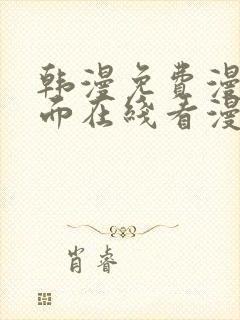 韩漫免费漫
而在线看漫
肖睿